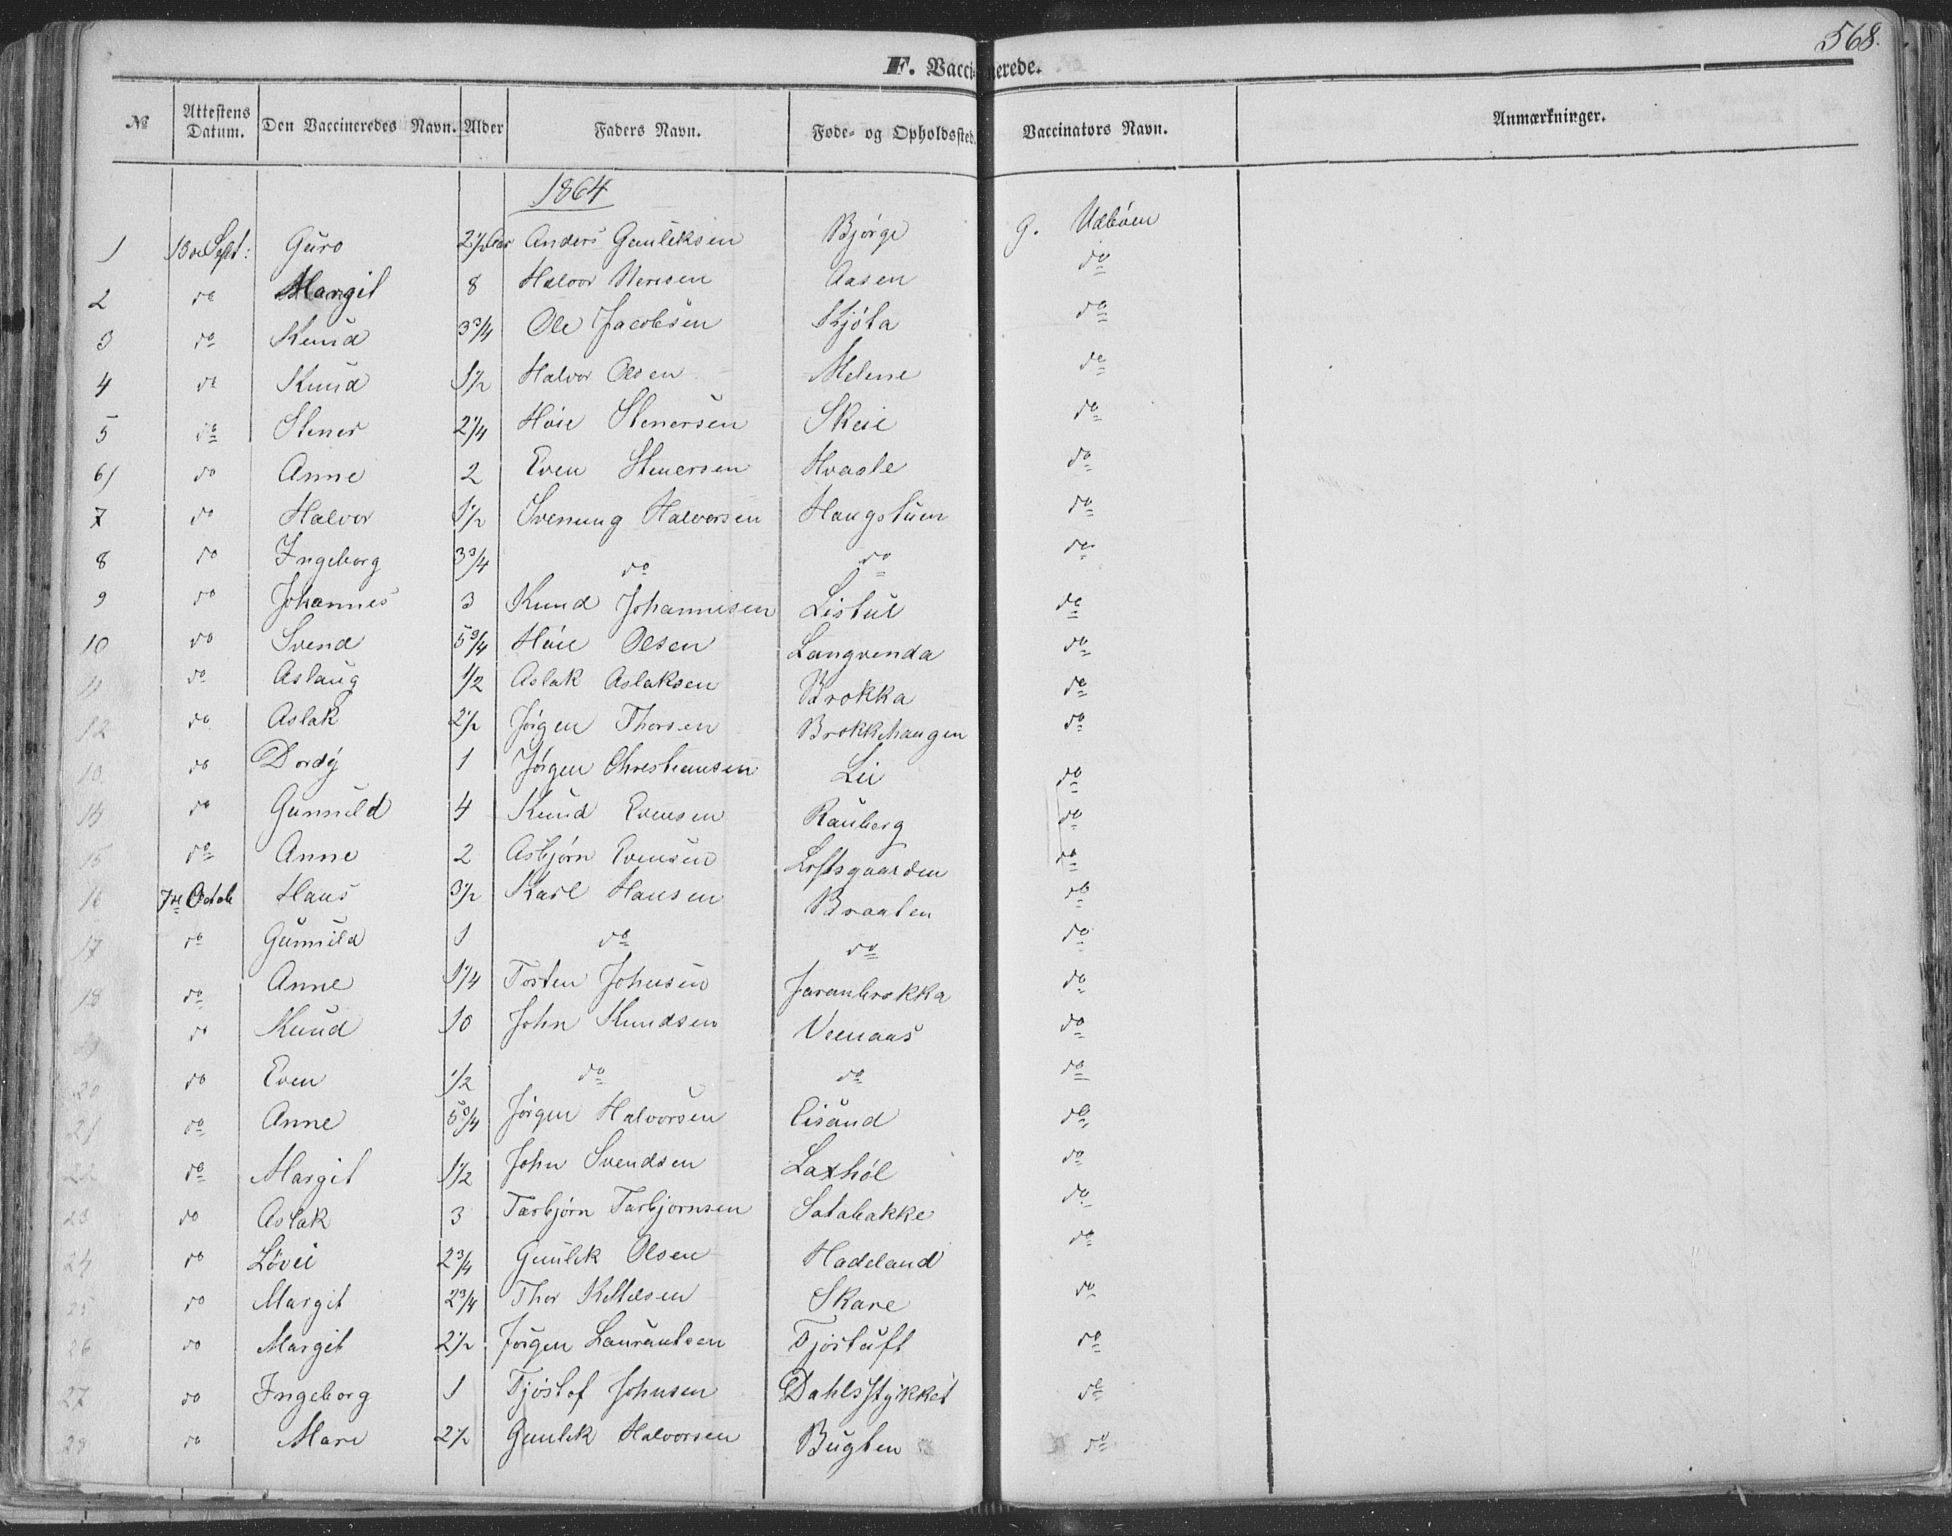 568.
F. Vaccinerede.
№ Attestens Datum. Den Vaccineredes Navn. Alder Faders Navn. Føde- og Opholdssted. Vaccinators Navn. Anmærkninger.
1864
1 13de Sept: Guro 2½ Aar Anders Gunleksen Bjørge G. Udbøen
2 do Margit 8 Halvor Aasen do
3 do Knud 3¾ Ole Jacobsen Skjøta do
4 do Knud 1½ Halvor Olsen Melene do
5 do Stener 2¼ Høie Stenersen Skeie do
6 do Anne 2 Even Stenersen Hvaale do
7 do Halvor 1½ Svenung Halvorsen Haugstuen do
8 do Ingeborg 3¾ do do do
9 do Johannes 3 Knud Johannesen Listul do
10 do Svend 5¾ Høie Olsen Langvenda do
11 do Aslaug ½ Aslak Aslaksen Brokka do
12 do Aslak 2½ Jørgen Thorsen Brokkehaugen do
13 do Dordy 1 Jørgen Christiansen Lii do
14 do Gunnild 4 Knud Evensen Rauberg do
15 do Anne 2 Asbjørn Evensen Loftsgaarden do
16 7de Octob Hans 3½ Karl Hansen Braaten do
17 do Gunnild 1 do do do
18 do Anne 1¼ Torsten Johnsen Jaranbrokka do
19 do Knud 10 John Knudsen Veenaas do
20 do Even ½ do do do
21 do Anne 5¾ Jørgen Halvorsen Eisand do
22 do Margit 1½ John Svendsen Laxhøl do
23 do Aslak 3 Tarbjørn Tarbjørnsen Satabakke do
24 do Løvii 2¾ Gunlek Olsen Hadeland do
25 do Margit 2¾ Thor Kittelsen Skare do
26 do Margit 2½ Jørgen Laurantsen Tjøstuft do
27 do Ingeborg 1 Tjøstof Johnsen Dahlsstykket do
28 do Mari 2½ Gunlek Halvorsen Bugten do